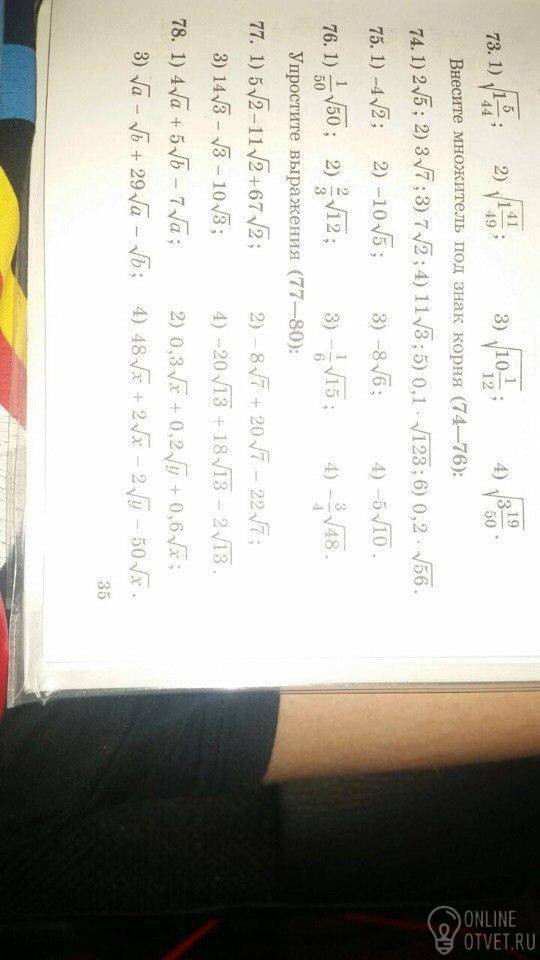 73. 1) √(1 5/44); 2) √(1 41/49); 3) √(10 1/12); 4) √(3 19/50).
Внесите множитель под знак корня (74—76):
74. 1) 2√5; 2) 3√7; 3) 7√2; 4) 11√3; 5) 0,1 · √123; 6) 0,2 · √56.
75. 1) −4√2; 2) −10√5; 3) −8√6; 4) −5√10.
76. 1) 1/50 √50; 2) 2/3 √12; 3) −1/6 √15; 4) −3/4 √48.
Упростите выражения (77—80):
77. 1) 5√2−11√2+67√2; 2) −8√7 + 20√7 − 22√7;
3) 14√3 − √3 − 10√3; 4) −20√13 + 18√13 − 2√13.
78. 1) 4√a + 5√b − 7√a; 2) 0,3√x + 0,2√y + 0,6√x;
3) √a − √b + 29√a − √b; 4) 48√x + 2√x − 2√y − 50√x.
35
ONLINE
OTVET.RU